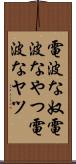 電波な奴電
波なやつ電
波なヤツ